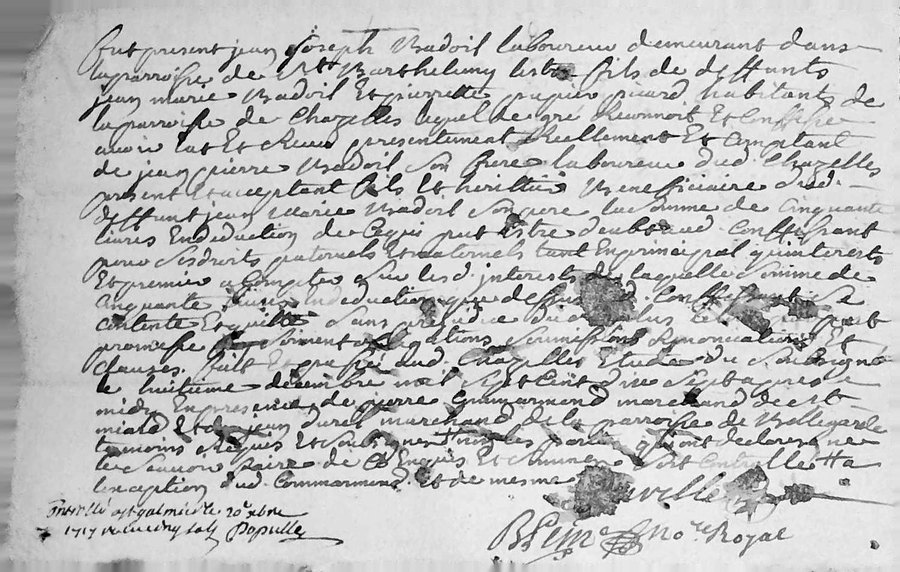 fut present jean Joseph Badoil laboureur demeurant dans
la parroisse de St Barthelemy lestra fils de deffants
jean marie Badoil Et pierrette papier quand habitants de
la parroisse de Chazelles lequel de gré Reconnoit Et Confesse
avoir Eut Et Receu presentement Reellement Et Comptant
de jean pierre Badoil son frere laboureur dud. Chazelles
present Et acceptant fils Et heritier Beneficiaire dud.
deffunt jean Marie Badoil son pere la somme de Cinquante
livres En deduction de Ce qui peut Estre deub aud. Confessant
pour ses droits paternels Et maternels tant En principal qu'interests
Et premier a Compte sur lesd. interests de laquelle somme de
Cinquante livres En deduction que dessus led. Confessant se
Contente Et quitte sans prejudice du
promesse serment obligations soumissions Renonciations Et
Clauses. fait Et passé aud. Chazelles Etude du soubsigné
le huitieme décembre mil sept Cent dix sept apres
midy En presence de pierre Commarmond marchand de St
Et de jean marchand de la parroisse de Bellegarde
temoins Requis Et soubsignes non les parties qui ont declaré ne
le scavoir faire de Ce Enquis Et sommés soit Controllé a
lexception dud. Commarmond Et de mesme
Controllé a St galmier le 10e xbre
1717 Receu cinq sols Populle
No.re Royal